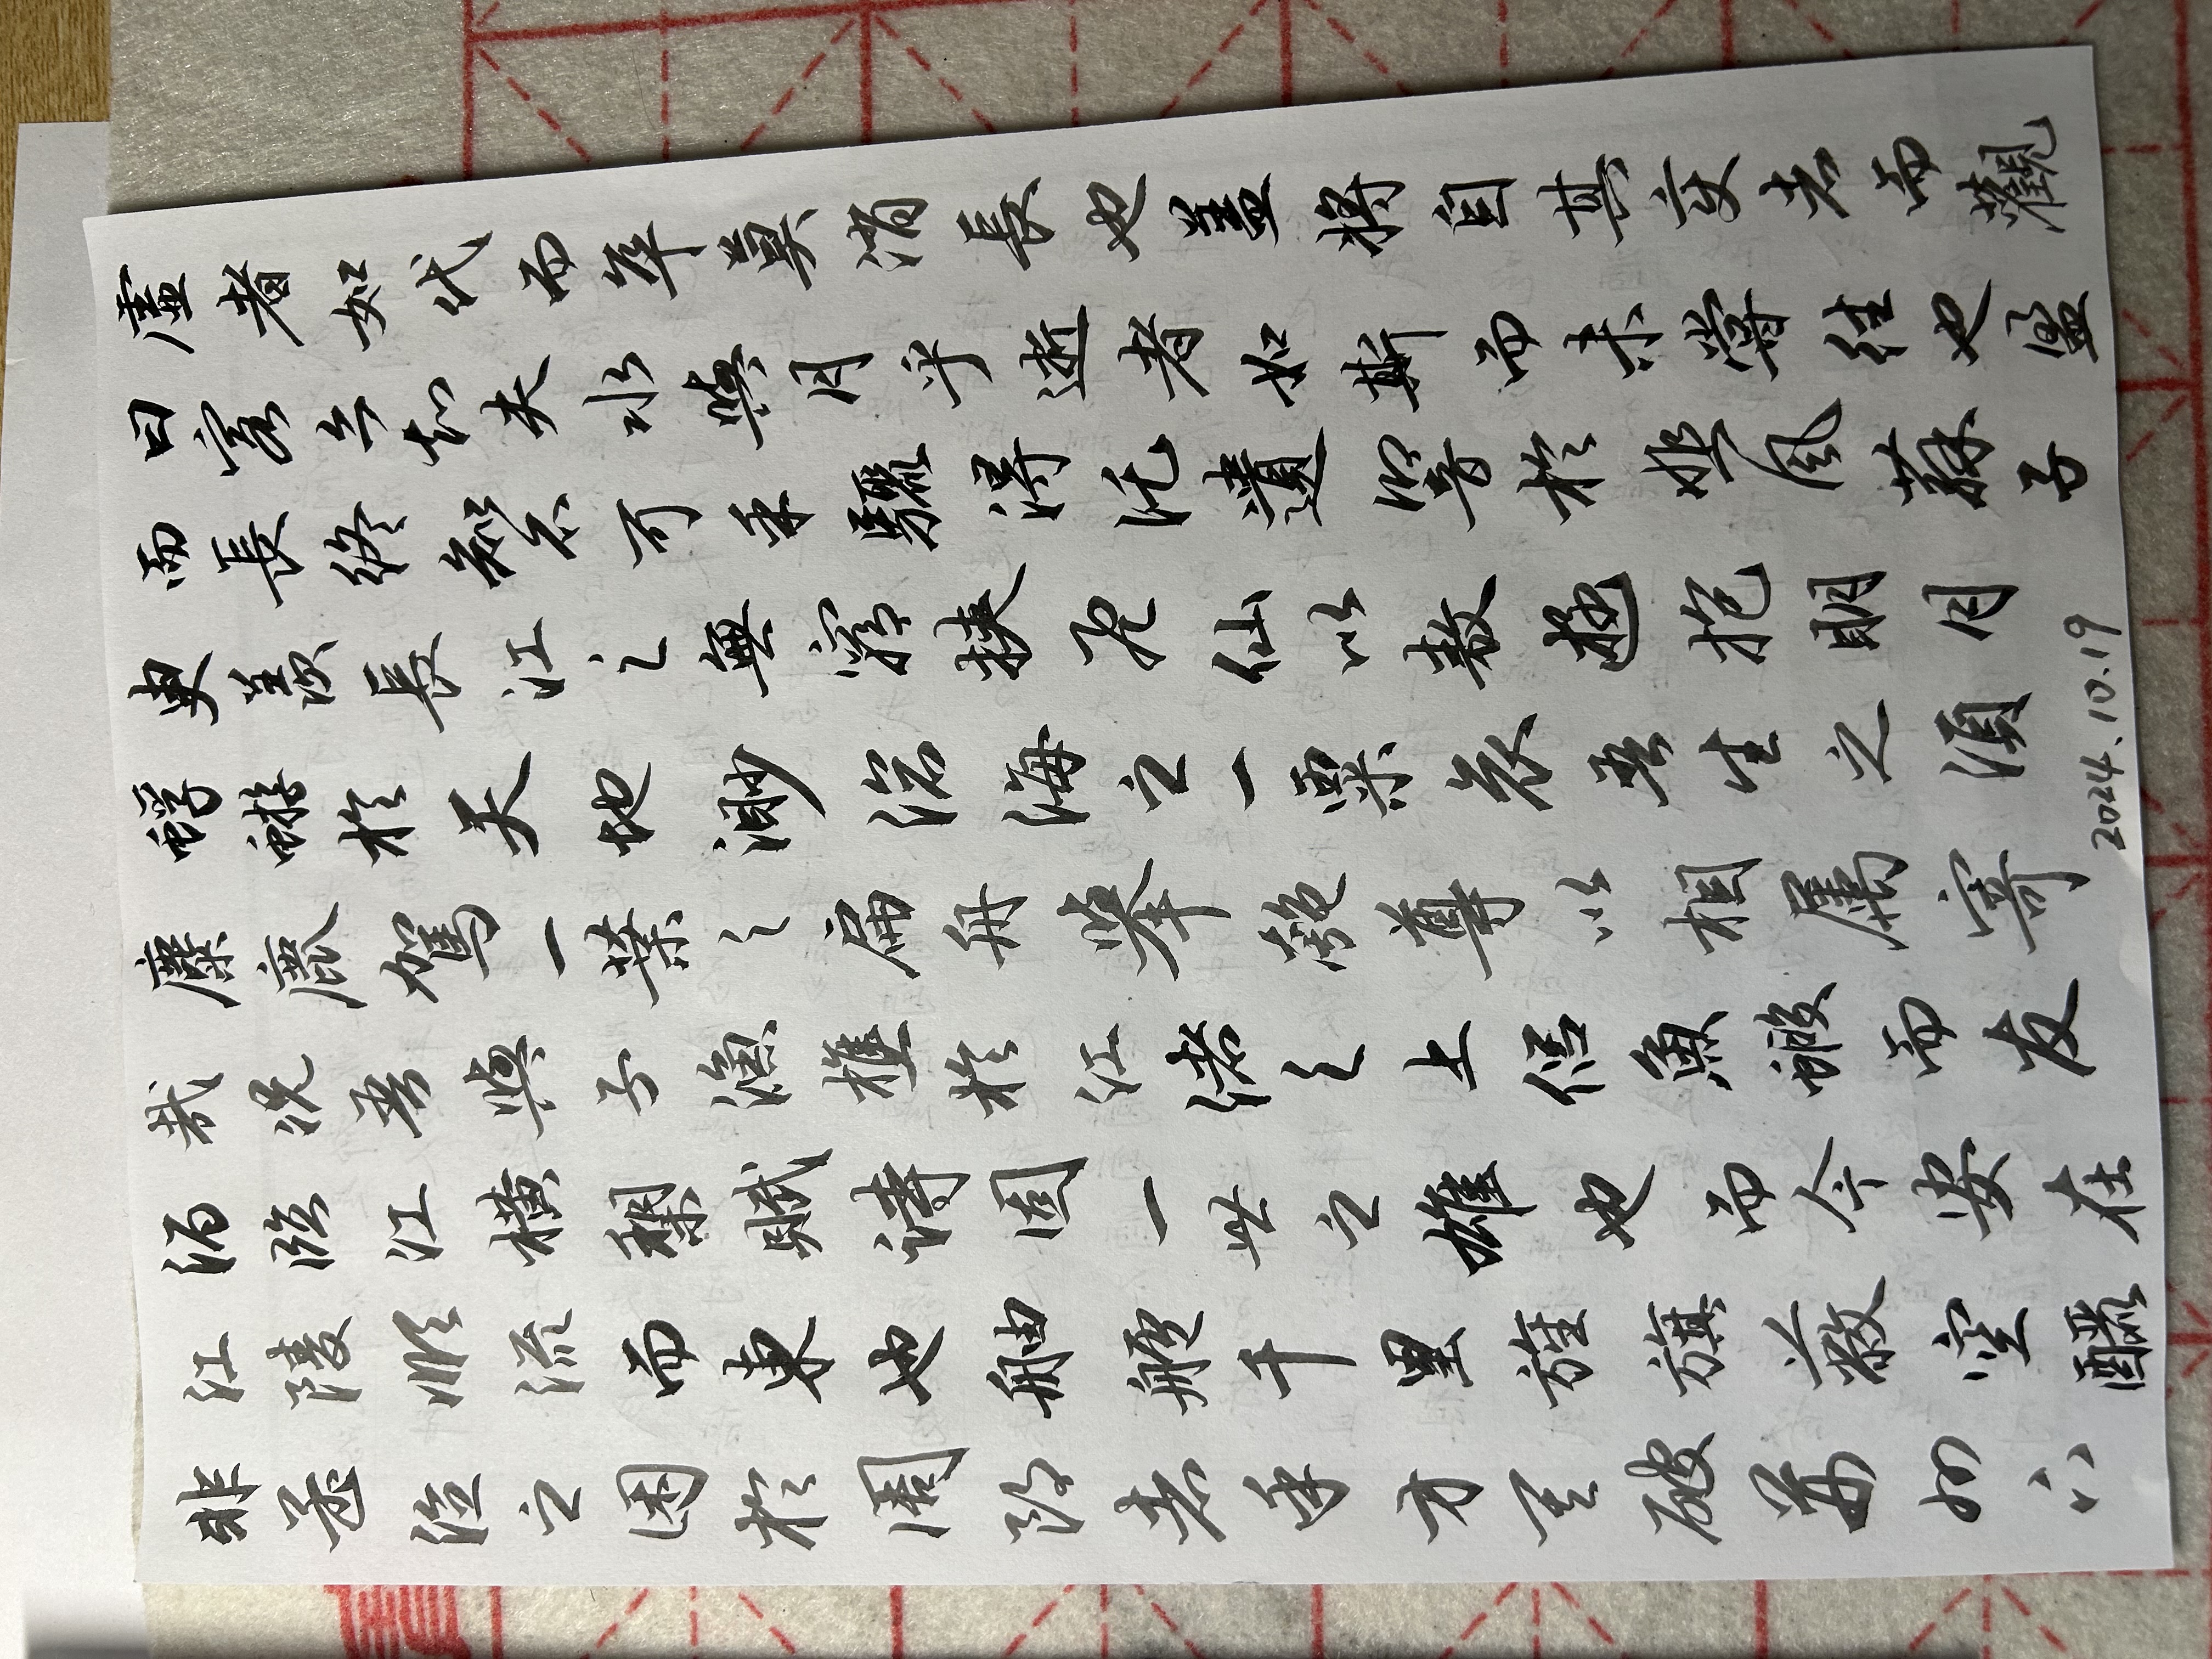 虛者如代而卒莫消長也蓋將自其变者而觀
曰客亦知夫水與月乎逝者如斯而未嘗往也盈
而長終知不可乎驟得託遺響於悲風蘇子
臾羨長江之無窮挾飛仙以敖遊抱明月
蜉蝣於天地渺滄海之一粟哀吾生之須
麋鹿駕一葉之扁舟舉匏尊以相属寄
哉況吾與子漁樵於江渚之上侶魚蝦而友
酒臨江橫槊賦詩固一世之雄也而今安在
江陵順流而東也舳艫千里旌旗蔽空釃
非孟德之困於周郎者乎方其破荊州下
2024.10.19